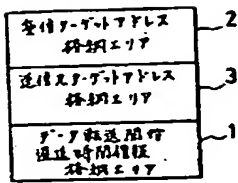 受信ターゲットアドレス
格納エリア
2
送信ターゲットアドレス
格納エリア
3
データ転送開始
遅延時間情報
格納エリア
1